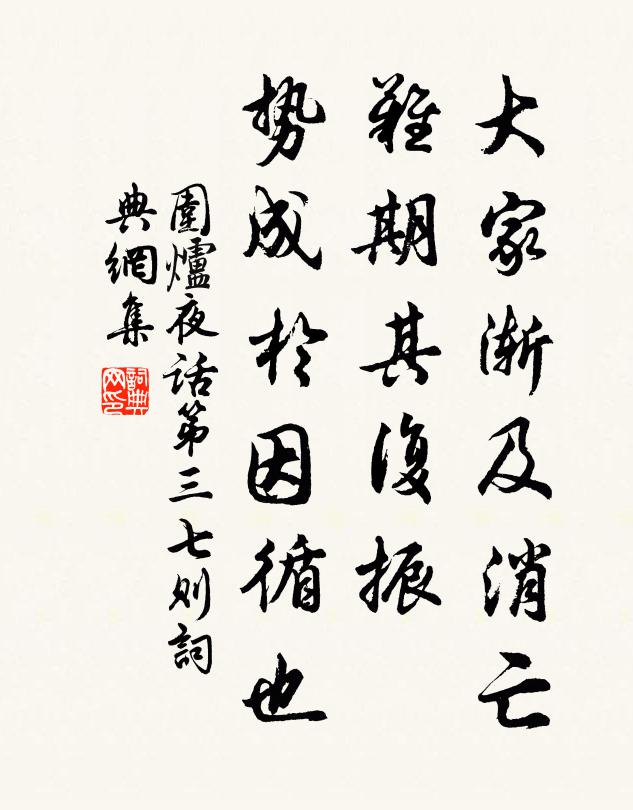 大家渐及消亡
難期其復振
势成於因循也
圍爐夜话第三七则詞
典網集
詞典
网印